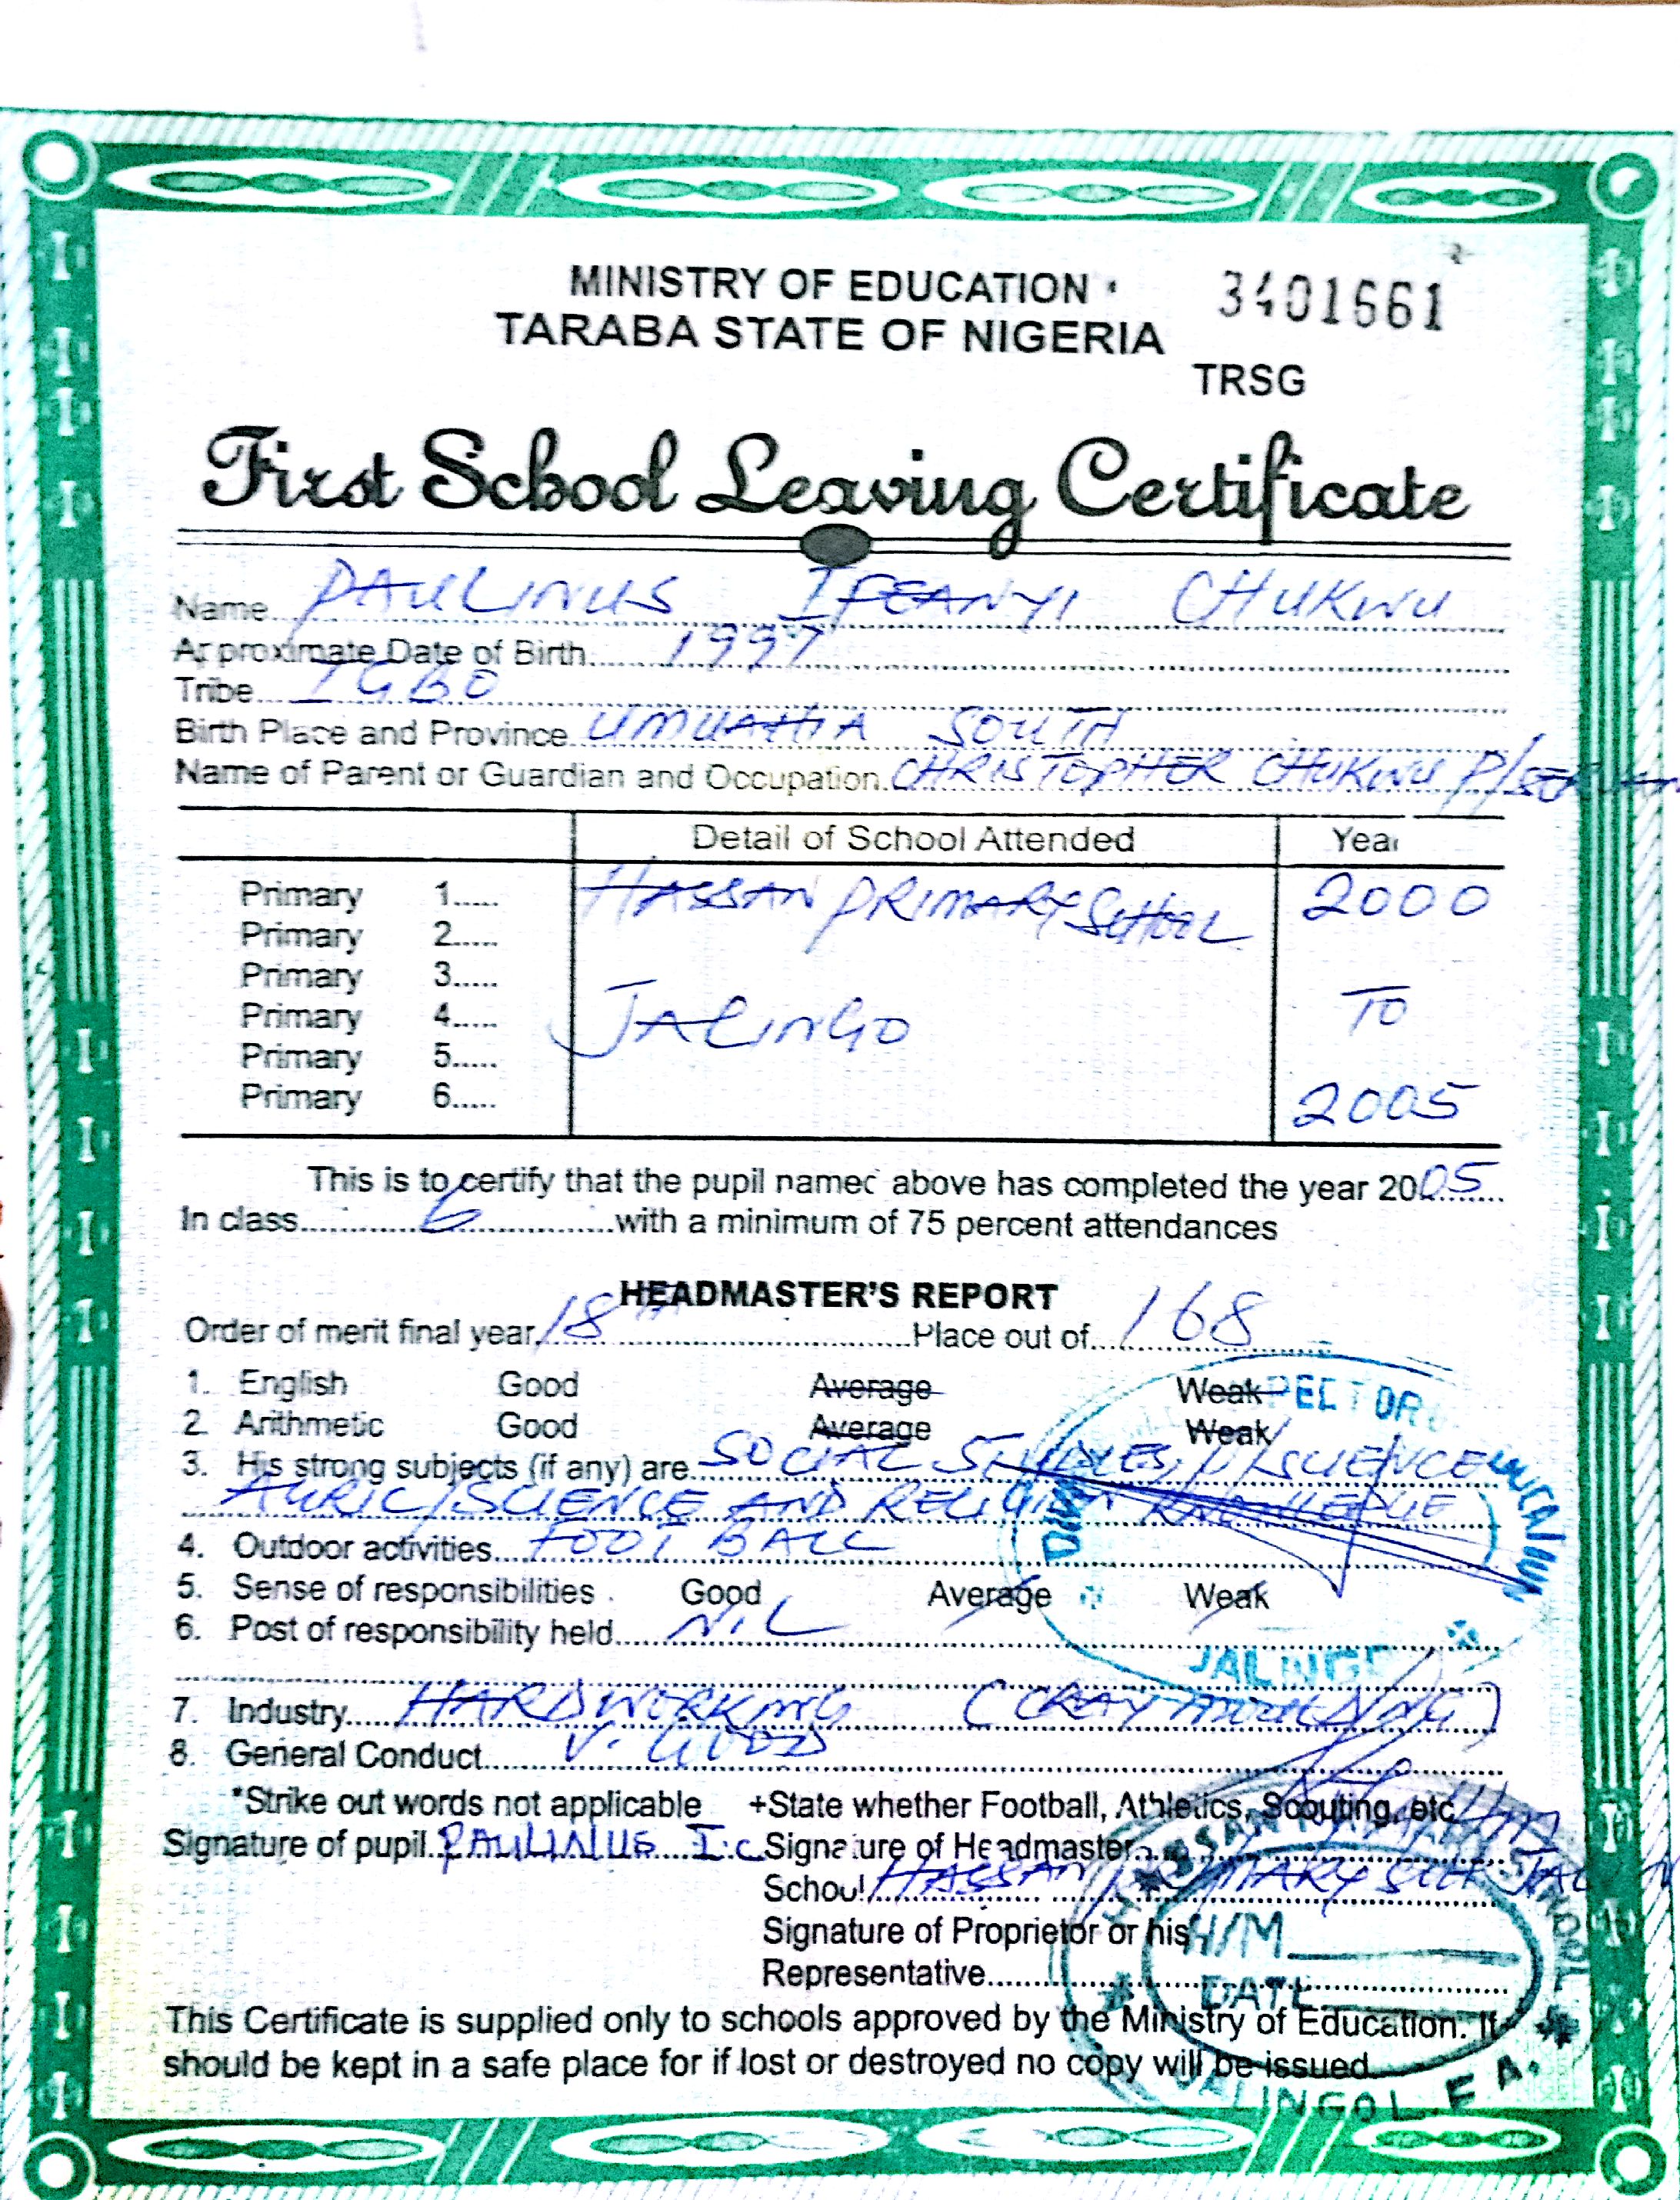 MINISTRY OF EDUCATION
3401661
TARABA STATE OF NIGERIA
TRSG
First School Leaving Certificate
Name PAULINUS IFEANYI CHUKWU
Approximate Date of Birth 1997
Tribe IGBO
Birth Place and Province UMUAHIA SOUTH
Name of Parent or Guardian and Occupation CHRISTOPHER CHUKWU
Detail of School Attended Year
Primary 1..... HASSAN PRIMARY SCHOOL 2000
Primary 2.....
Primary 3.....
Primary 4..... JALINGO TO
Primary 5.....
Primary 6..... 2005
This is to certify that the pupil named above has completed the year 2005
In class 6 with a minimum of 75 percent attendances
HEADMASTER'S REPORT
Order of merit final year 18TH Place out of 168
1. English Good Average Weak
2. Arithmetic Good Average Weak
3. His strong subjects (if any) are SOCIAL STUDIES, P/SCIENCE
AGRIC/SCIENCE AND RELIGION KNOWLEDGE
4. Outdoor activities FOOT BALL
5. Sense of responsibilities Good Average Weak
6. Post of responsibility held NIL
JALINGO
7. Industry HARDWORKING (CRAY MOULDING)
8. General Conduct V. GOOD
*Strike out words not applicable +State whether Football, Athletics, Scouting, etc
Signature of pupil PAULINUS I.C Signature of Headmaster
School HASSAN PRIMARY SCH JAL
Signature of Proprietor or his
H/M
Representative
DATE
This Certificate is supplied only to schools approved by the Ministry of Education. It
should be kept in a safe place for if lost or destroyed no copy will be issued
JALINGO L.E.A.